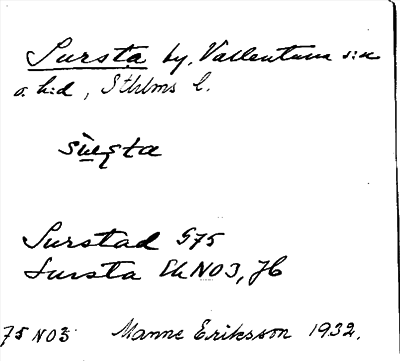 Sursta by, Vallentuna s:n
o. h:d, Sthlms l.
Surstad G75
Sursta Ek NO3, JC
75 NO3 Manne Eriksson 1932.